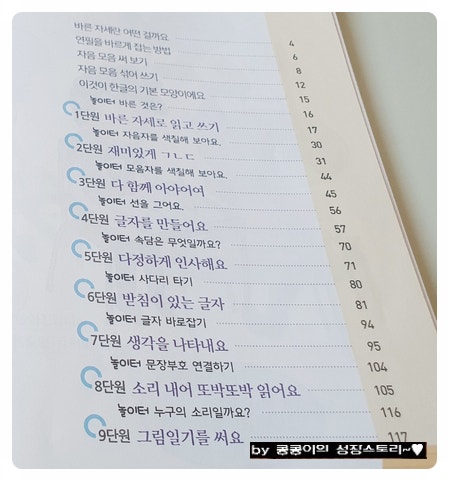 바른 자세란 어떤 걸까요 4
연필을 바르게 잡는 방법 6
자음 모음 써 보기 8
자음 모음 섞어 쓰기 12
이것이 한글의 기본 모양이에요 15
놀이터 바른 것은? 16
1단원 바른 자세로 읽고 쓰기 17
놀이터 자음자를 색칠해 보아요. 30
2단원 재미있게 ㄱㄴㄷ 31
놀이터 모음자를 색칠해 보아요. 44
3단원 다 함께 아야어여 45
놀이터 선을 그어요. 56
4단원 글자를 만들어요 57
놀이터 속담은 무엇일까요? 70
5단원 다정하게 인사해요 71
놀이터 사다리 타기 80
6단원 받침이 있는 글자 81
놀이터 글자 바로잡기 94
7단원 생각을 나타내요 95
놀이터 문장부호 연결하기 104
8단원 소리 내어 또박또박 읽어요 105
놀이터 누구의 소리일까요? 116
9단원 그림일기를 써요 117
by 콩콩이의 성장스토리~♥